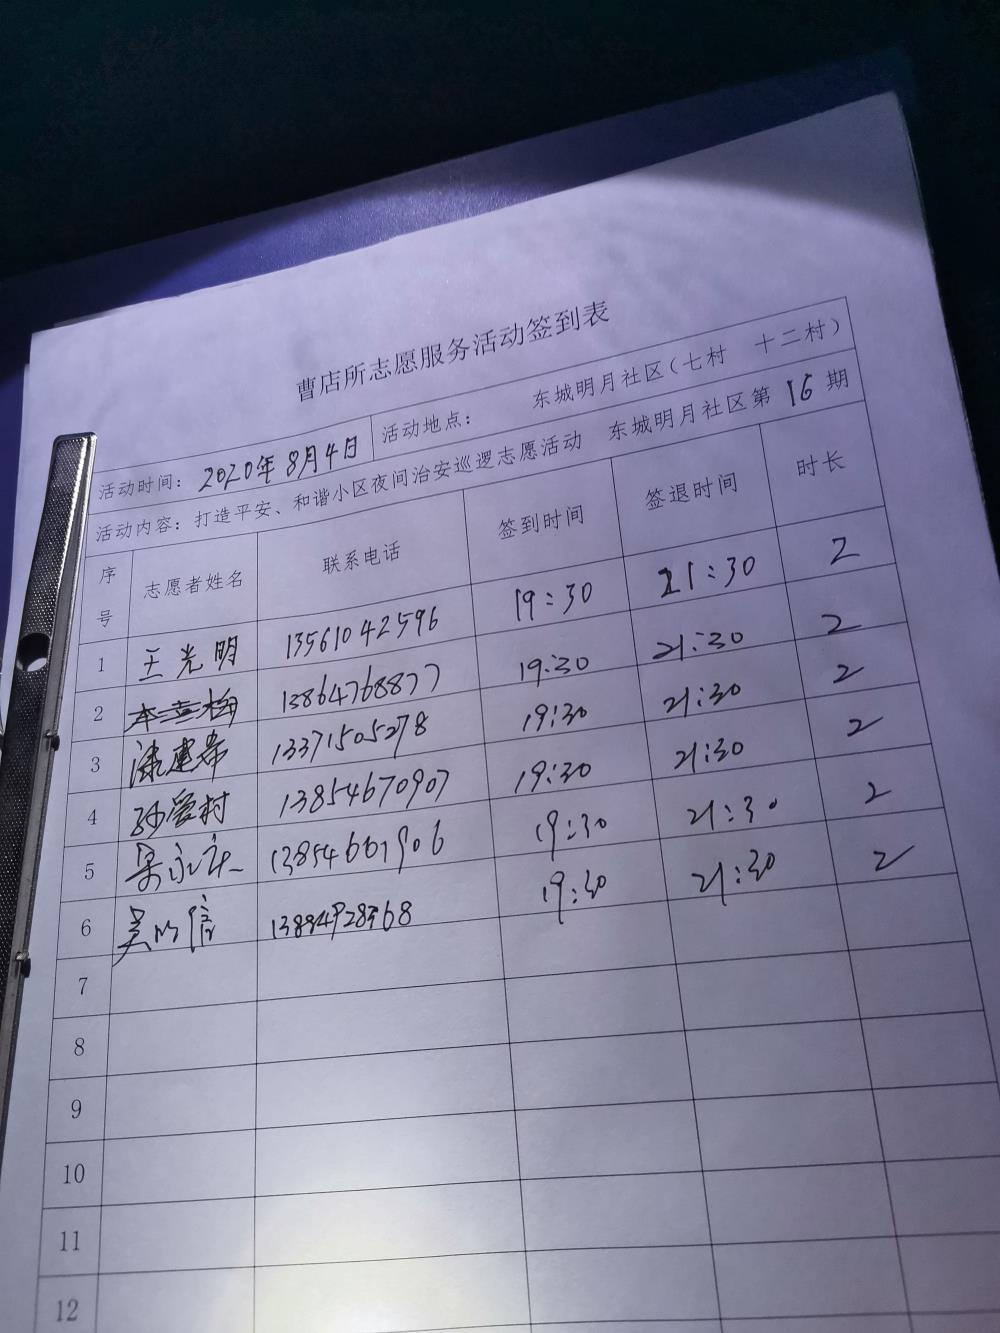 曹店所志愿服务活动签到表
活动时间：2020年8月4日 活动地点： 东城明月社区（七村 十二村）
活动内容：打造平安、和谐小区夜间治安巡逻志愿活动 东城明月社区第16期
序号 志愿者姓名 联系电话 签到时间 签退时间 时长
1 王光明 13561042596 19:30 21:30 2
2 13864768877 19:30 21:30 2
3 13371505278 19:30 21:30 2
4 孙爱村 13854670907 19:30 21:30 2
5 19:30 21:30 2
6 吴明信 19:30 21:30 2
7
8
9
10
11
12